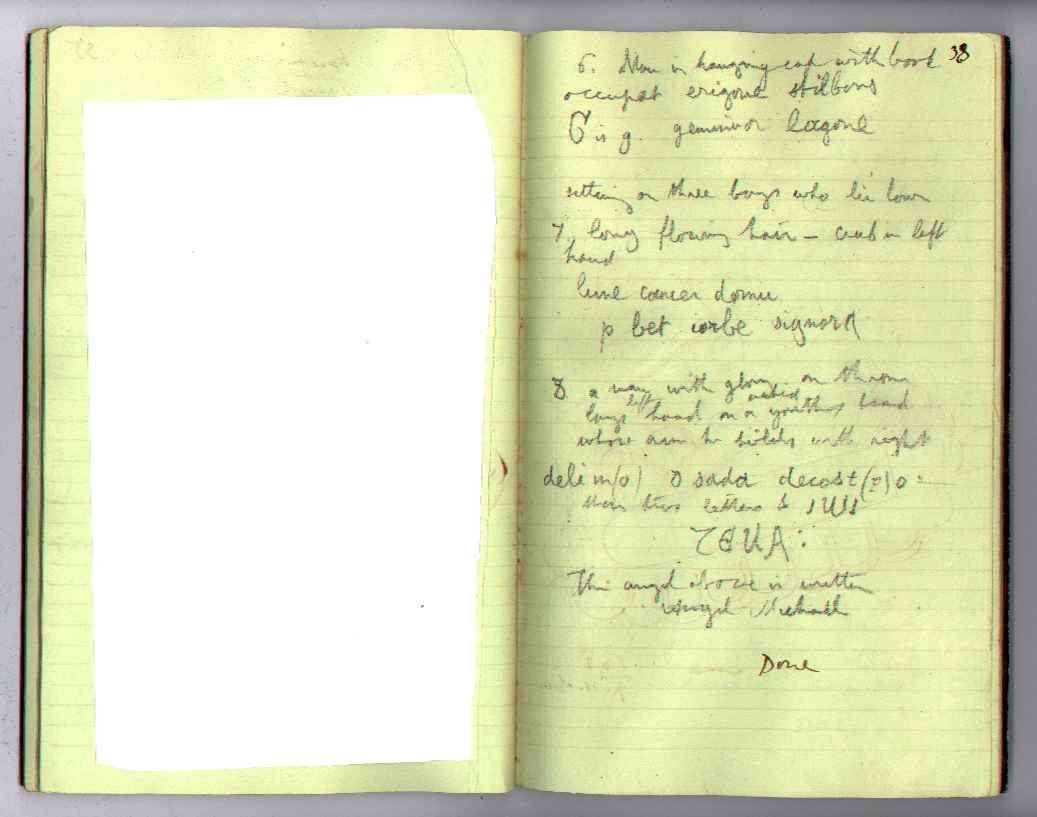 38
6. Man in hanging cap with book
occupat erigone stilbons
G is g. geminior lagone
sitting on three boys who lie down
7. long flowing hair – cub in left
hand
lune cancer domu
p bet iorbe signora
8 a man with glory on throne
lays left hand on a naked youths head
whose arm he holds with right
deli m(o) o sada decost(p)o :
then two letters &
This angel above is written
Angel Michael
Done